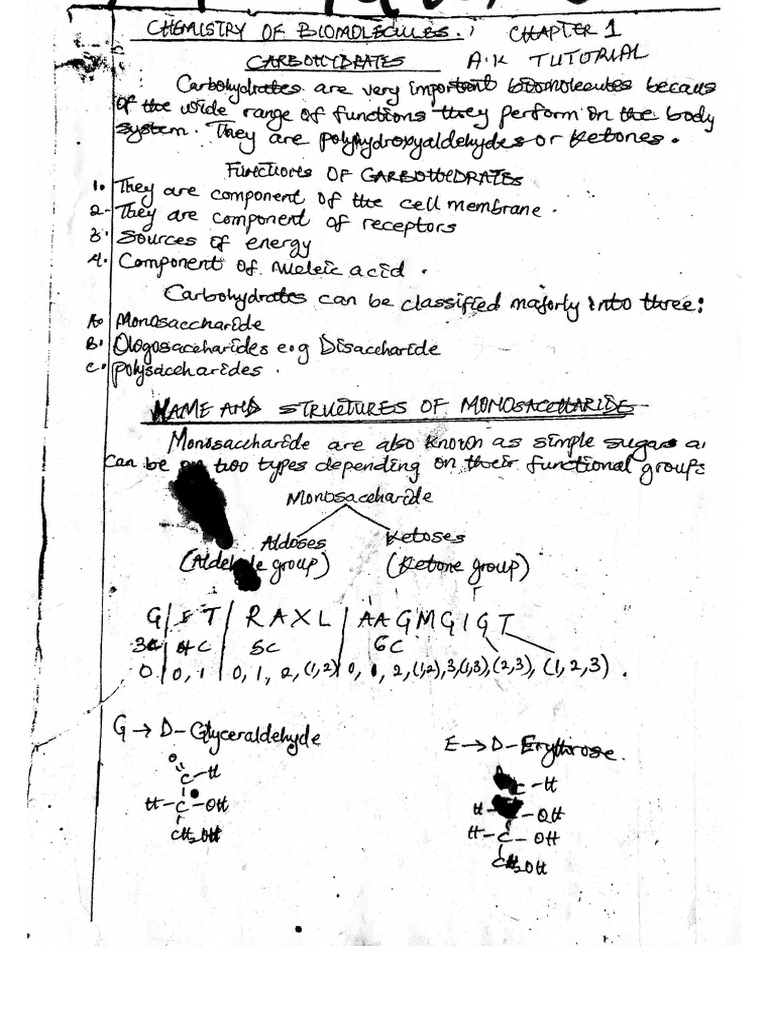 CHEMISTRY OF BIOMOLECULES. CHAPTER 1
CARBOHYDRATES A.K TUTORIAL
Carbohydrates are very important biomolecules becaus
of the wide range of functions they perform on the body
system. They are polyhydroxyaldehydes or ketones.
FUNCTIONS OF CARBOHYDRATES
1. They are component of the cell membrane.
2. They are component of receptors
3. Sources of energy
4. Component of Nucleic acid.
Carbohydrates can be classified majorly into three:
A. Monosaccharide
B. Ologosaccharides e.g Disaccharide
C. Polysaccharides.
NAME AND STRUCTURES OF MONOSACCHARIDE
Monosaccharide are also known as simple sugars a
can be two types depending on their functional groups
Monosaccharide
Aldoses Ketoses
(Aldehyde group) (Ketone group)
G | E T | R A X L | A A G M G I G T
3C | 4C | 5C | 6C
0 | 0, 1 | 0, 1, 2, (1,2) | 0, 1, 2, (1,2), 3, (1,3), (2,3), (1,2,3).
G → D-Glyceraldehyde
E → D-Erythrose.
O
C-H
H-C-OH
CH2OH
C-H
H-C-OH
H-C-OH
CH2OH